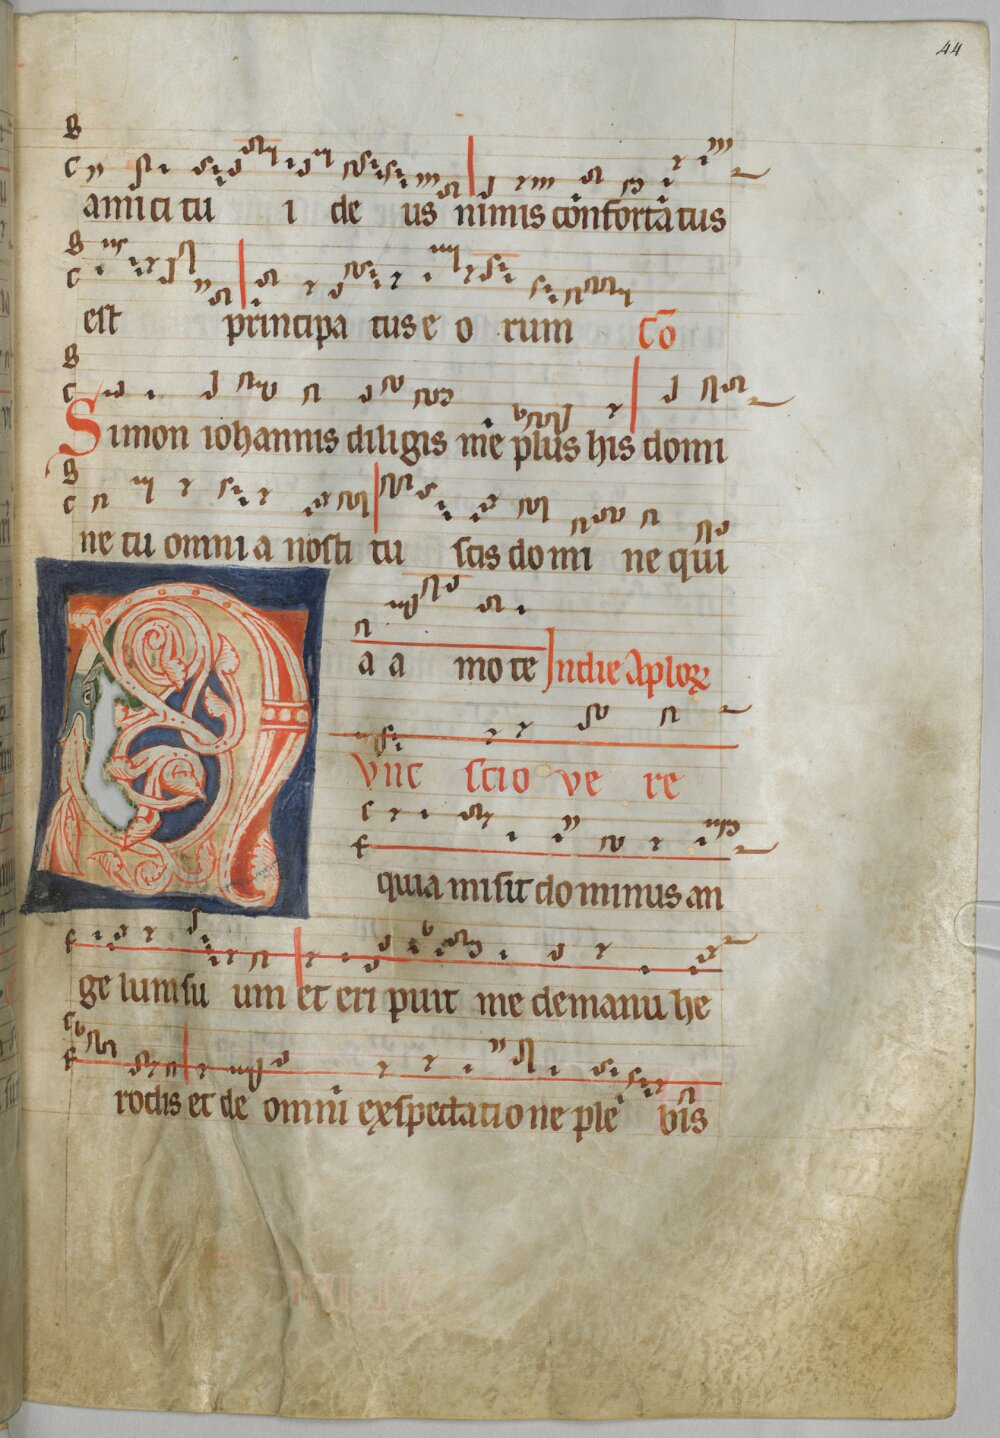 44
amici tu i de us nimis confortatus
est principa tus e o rum Cō
Simon iohannis diligis me plus his domi
ne tu omni a nosti tu scis do mi ne qui
a a mo te Indie Aploꝝ
Vnc scio ve re
quia misit do minus an
ge lum su um et eri puit me demanu he
rodis et de omni exspectatio ne ple bis